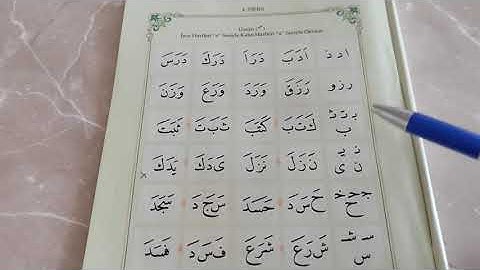 4. DERS
Üstün (َ)
İnce Harfleri "e" Sesiyle Kalın Harfleri "a" Sesiyle Okutur
ا د ذ اَدَبَ دَرَاَ دَرَكَ دَرَسَ
ر ز و رَزَقَ وَرَدَ وَرَعَ وَزَنَ
ب ت ث ب كَ تَ بَ كَتَبَ ثَ بَ تَ ثَبَتَ
ن ي ن ى نَ زَ لَ نَزَلَ يَ دَ كَ يَدَكَ
ج ح خ ح حَ سَ دَ حَسَدَ سَ جَ دَ سَجَدَ
س ش س شَ رَ عَ شَرَعَ فَ سَ دَ فَسَدَ